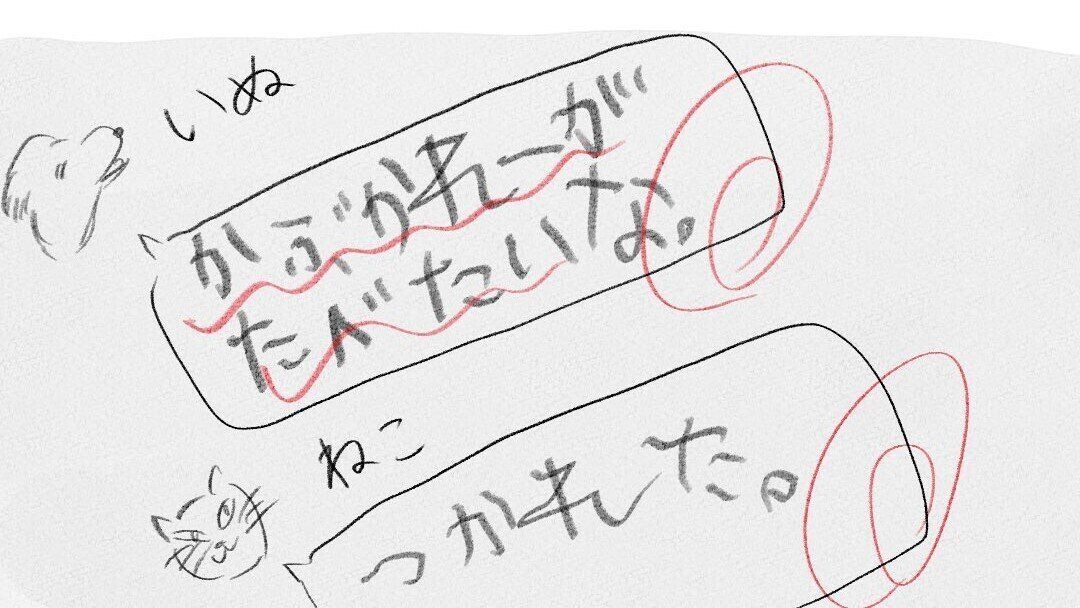 いぬ
かぶかれーが
たべたいな。
ねこ
つかれた。